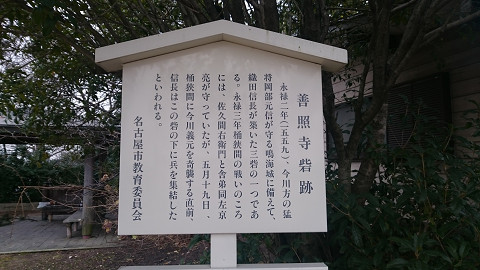 善照寺砦跡
永禄二年(一五五九)、今川方の猛
将岡部元信が守る鳴海城に備えて、
織田信長が築いた三砦の一つであ
る。永禄三年桶狭間の戦いのころ
には、佐久間右衛門と舎弟同左京
亮が守っていたが、五月十九日、
桶狭間に今川義元を奇襲する直前、
信長はこの砦の下に兵を集結した
といわれる。
名古屋市教育委員会